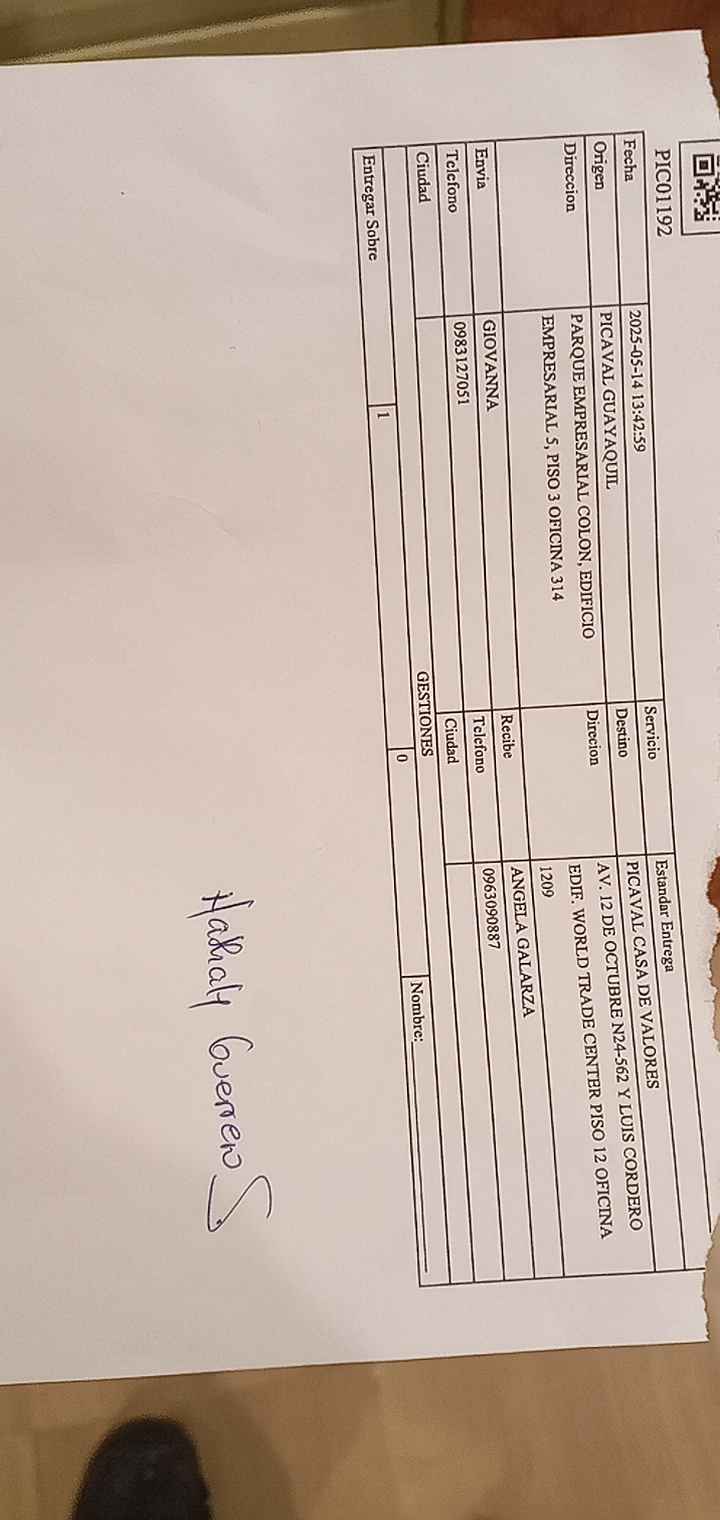 PIC01192
Fecha 2025-05-14 13:42:59 Servicio Estandar Entrega
Origen PICAVAL GUAYAQUIL Destino PICAVAL CASA DE VALORES
Direccion PARQUE EMPRESARIAL COLON, EDIFICIO EMPRESARIAL 5, PISO 3 OFICINA 314 Direcion AV. 12 DE OCTUBRE N24-562 Y LUIS CORDERO EDIF. WORLD TRADE CENTER PISO 12 OFICINA 1209
Envia GIOVANNA Recibe ANGELA GALARZA
Telefono 0983127051 Telefono 0963090887
Ciudad Ciudad
GESTIONES
Entregar Sobre 1 0 Nombre:
Nathaly Guerrero S.